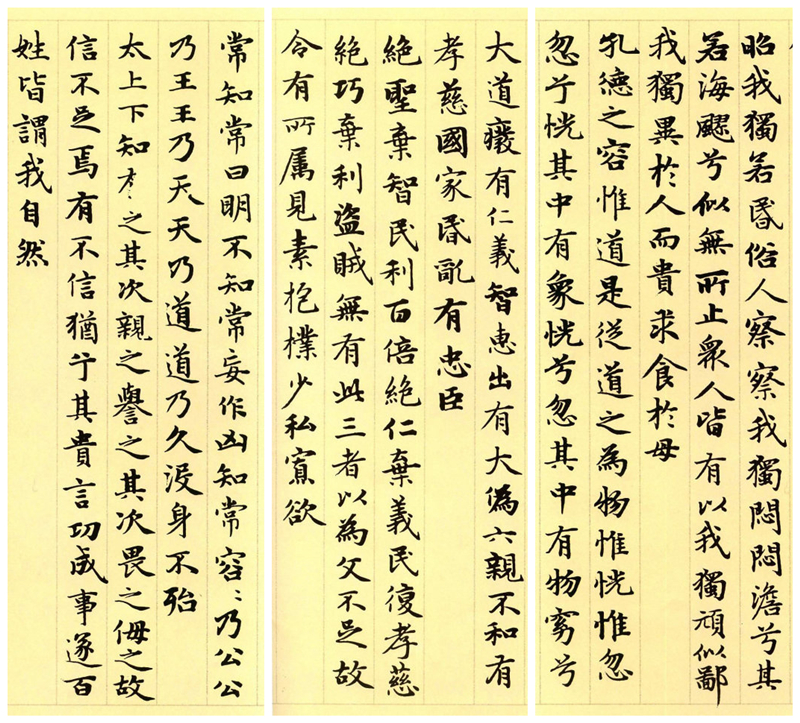 常知常曰明不知常妄作凶知常容〻乃公公
乃王王乃天天乃道道乃久沒身不殆
太上下知之其次親之譽之其次畏之侮之故
信不足焉有不信猶兮其貴言功成事遂百
姓皆謂我自然
大道癈有仁義智惠出有大偽六親不和有
孝慈國家昏亂有忠臣
絕聖棄智民利百倍絕仁棄義民復孝慈
絕巧棄利盜賊無有此三者以為文不足故
令有所属見素抱樸少私寡欲
昭我獨若昏俗人察察我獨悶悶澹兮其
若海飂兮似無所止衆人皆有以我獨頑似鄙
我獨異於人而貴求食於母
孔德之容惟道是從道之為物惟恍惟忽
忽兮恍其中有象恍兮忽其中有物窈兮